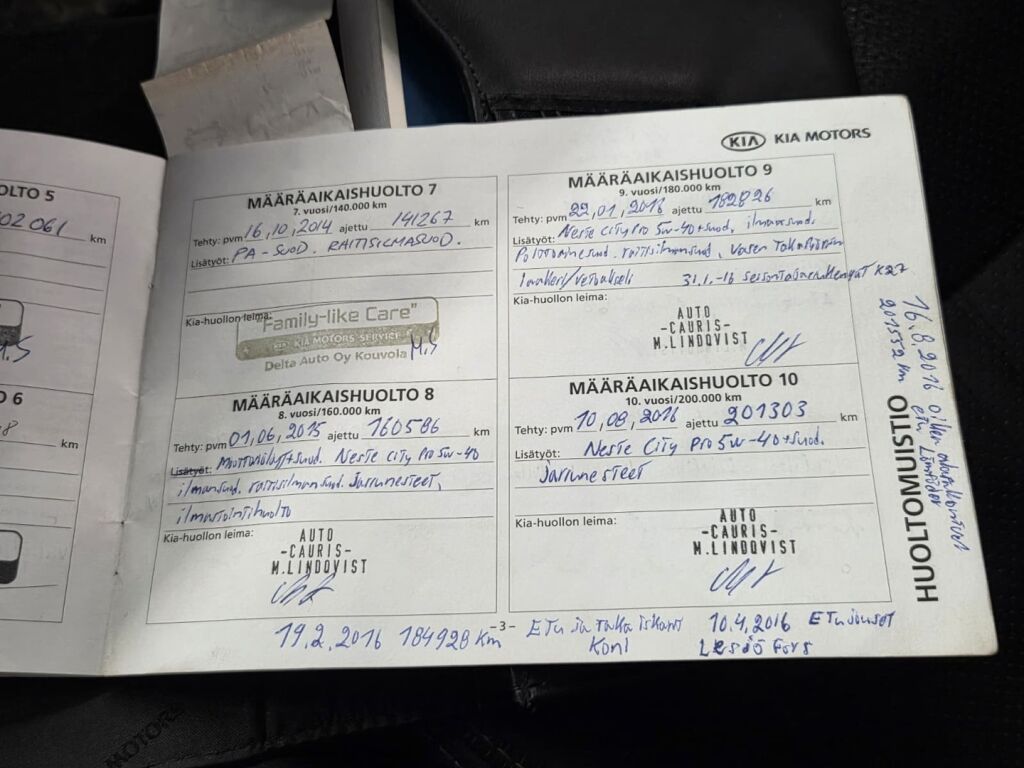 OLTO 5
02061 km
O 6
8 km
KIA KIA MOTORS
MÄÄRÄAIKAISHUOLTO 7
7. vuosi/140.000 km
Tehty: pvm 16,10,2014 ajettu 141267 km
Lisätyöt: PA-SUOD. RAITISILMASUOD.
Kia-huollon leima:
"Family-like Care"
KIA MOTORS SERVICE
Delta Auto Oy Kouvola M.S
MÄÄRÄAIKAISHUOLTO 8
8. vuosi/160.000 km
Tehty: pvm 01,06,2015 ajettu 160586 km
Lisätyöt: Moottoriöljyt+suod. Neste City Pro 5W-40
ilmansuod. raitisilmansuod. Jarrunesteet,
ilmastointihuolto
Kia-huollon leima:
AUTO
-CAURIS-
M.LINDQVIST
MÄÄRÄAIKAISHUOLTO 9
9. vuosi/180.000 km
Tehty: pvm 22,01,2016 ajettu 182826 km
Lisätyöt: Neste City Pro 5W-40+suod, ilmansuod.
Polttoainesuod. raitisilmansuod, Vasen Taka
laakeri/vetoakseli 31.1.-16
Kia-huollon leima:
AUTO
-CAURIS-
M.LINDQVIST
MÄÄRÄAIKAISHUOLTO 10
10. vuosi/200.000 km
Tehty: pvm 10,08,2016 ajettu 201303 km
Lisätyöt: Neste City Pro 5W-40+suod.
Jarrunesteet
Kia-huollon leima:
AUTO
-CAURIS-
M.LINDQVIST
HUOLTOMUISTIO
16.8.2016 oikea
201552 km etu
-3-
19.2.2016 184928 km Etu ja taka iskarit
Koni
10.4.2016 Etujouset
Lesjöfors
MOTORS